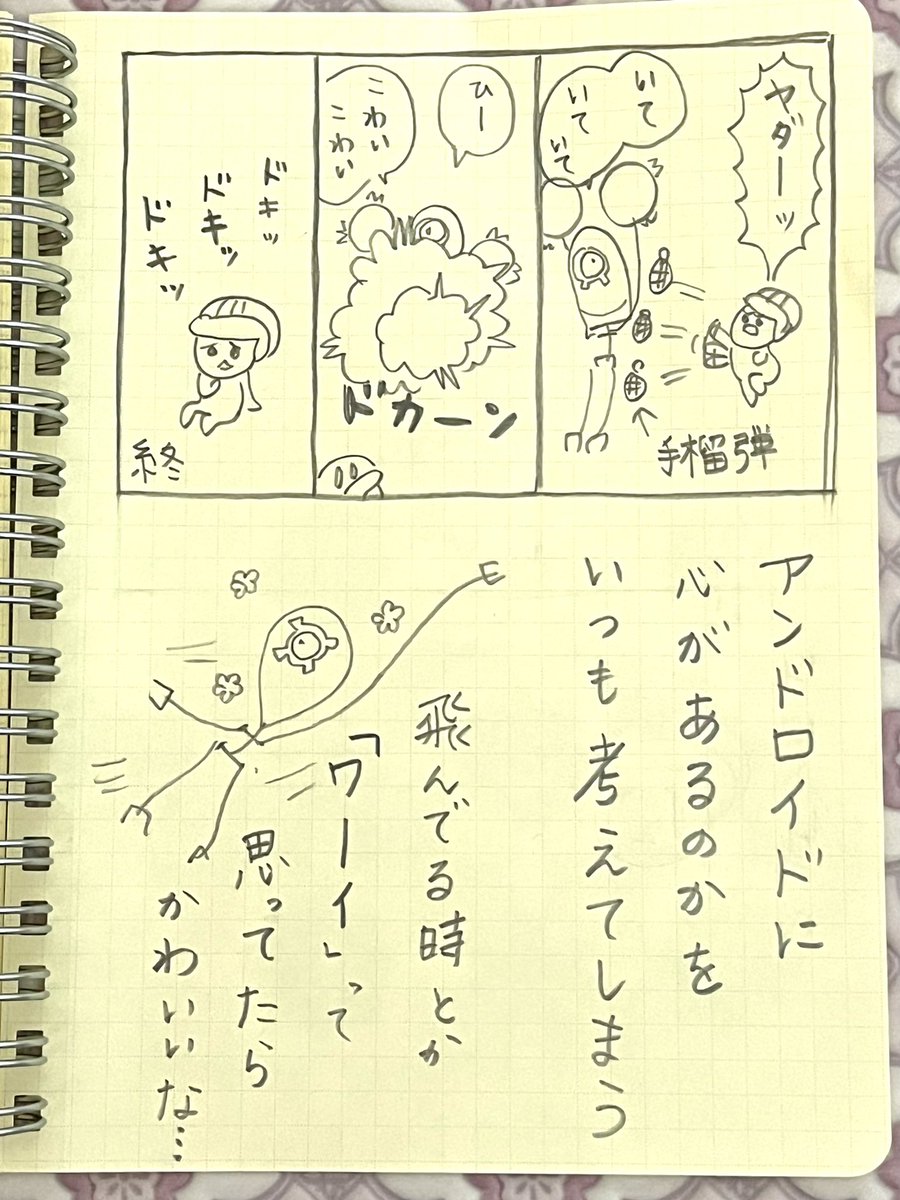 ヤダーッ
いて
いて
いて
手榴弾
ひー
こわい
こわい
ドカーン
ドキッ
ドキッ
ドキッ
終
アンドロイドに
心があるのかを
いつも考えてしまう
飛んでる時とか
「ワーイ」って
思ってたら
かわいいな…